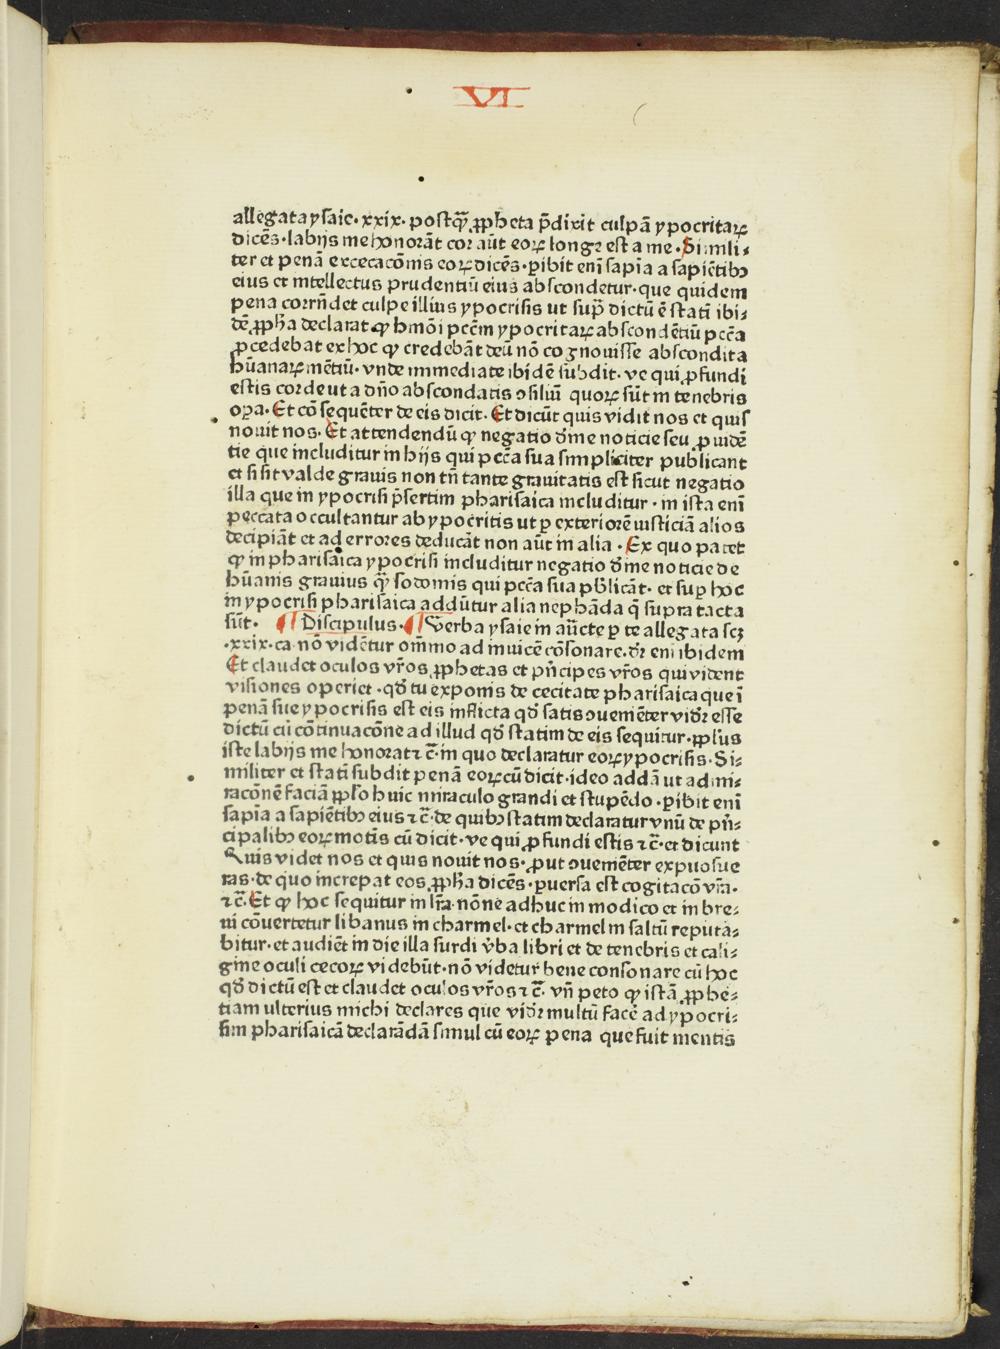 VI
allegata ysaie·xxix·postq̃ ꝓpheta p̃dixit culpā ypocritaꝝ
dicēs·labijs me honorāt cor aūt eoꝝ longe est a me·Simili⸗
ter et penā excecacōnis eoꝝ dicēs·ꝑibit enī sapīa a sapiētibꝫ
eius et intellectus prudentiū eius abscondetur·que quidem
pena corrñdet culpe illius ypocrisis ut sup̃ dictū ē statī ibi⸗
dē ꝓpħa declarat ꝙ hmōi pccm̄ ypocritaꝝ abscondētiū pccā
ꝓcedebat ex hoc ꝙ credebāt deū nō cognouisse abscondita
hūanaꝝ mētiū·vnde immediate ibidē subdit·ve qui ꝓfundi
estis corde ut a dño abscondatis ꝯsiliū quoꝝ sūt in tenebris
oꝑa·Et cōsequēter de eis dicit·Et dicūt quis vidit nos et quis
nouit nos·Et attendendū ꝙ negatio dīne noticie seu ꝓuidē
tie que includitur in hijs qui pccā sua simpliciter publicant
et si sit valde grauis non tñ tante grauitatis est sicut negatio
illa que in ypocrisi p̃sertim pharisaica includitur·in ista enī
peccata occultantur ab ypocritis ut ꝑ exteriorē iusticiā alios
decipiāt et ad errores deducāt non aūt in alia·Ex quo patet
ꝙ in pharisaica ypocrisi includitur negatio dīne noticie de
hūanis grauius q̃ sodomis qui pccā sua pħlicāt·et suꝑ hoc
in ypocrisi pharisaica addūtur alia nephāda q̄ supra tacta
sūt·¶ Discipulus·¶ Verba ysaie in aūcte ꝑ te allegata scꝫ
·xxix·ca·nō vidētur om̄mo ad inuicē cōsonare·dr̄ eni ibidem
Et claudet oculos vr̄os ꝓphetas et pñcipes vr̄os qui vident
visiones operiet·qđ tu exponis de cecitate pharisaica que ī
penā sue ypocrisis est eis inflicta qđ satis ꝯueniēter vidr̄ esse
dictū cū cōtinuacōne ad illud qđ statim de eis sequitur·ꝓpl'us
iste labijs me honorat ⁊ c̄·in quo declaratur eoꝝ ypocrisis·Si⸗
militer et statī subdit penā eoꝝ cū dicit·ideo addā ut admi⸗
racōnē faciā ꝓpl'o huic miraculo grandi et stupēdo·ꝑibit enī
sapīa a sapiētibꝫ eius ⁊ c̄·de quibꝫ statim declaratur vnū de pñ⸗
cipalibꝫ eoꝝ motīs cū dicit·ve qui ꝓfundi estis ⁊ c̄·et dicunt
Quis videt nos et quis nouit nos·ꝓut ꝯueniēter expuosue
ras·de quo increpat eos ꝓpħa dicēs·ꝑuersa est cogitacō vr̄a·
⁊ c̄·Et ꝙ hoc sequitur in lr̄a·nōne adhuc in modico et in bre⸗
ui cōuertetur libanus in charmel·et charmel in saltū reputa⸗
bitur·et audiēt in die illa surdi v̓ba libri et de tenebris et cali⸗
gine oculi cecoꝝ videbūt·nō videtur bene consonare cū hoc
qđ dictū est et claudet oculos vr̄os ⁊ c̄·vñ peto ꝙ istā ꝓphe⸗
tiam ulterius michi declares que vidr̄ multū facē ad ypocri⸗
sim pharisaicā declarādā simul cū eoꝝ pena que fuit mentis